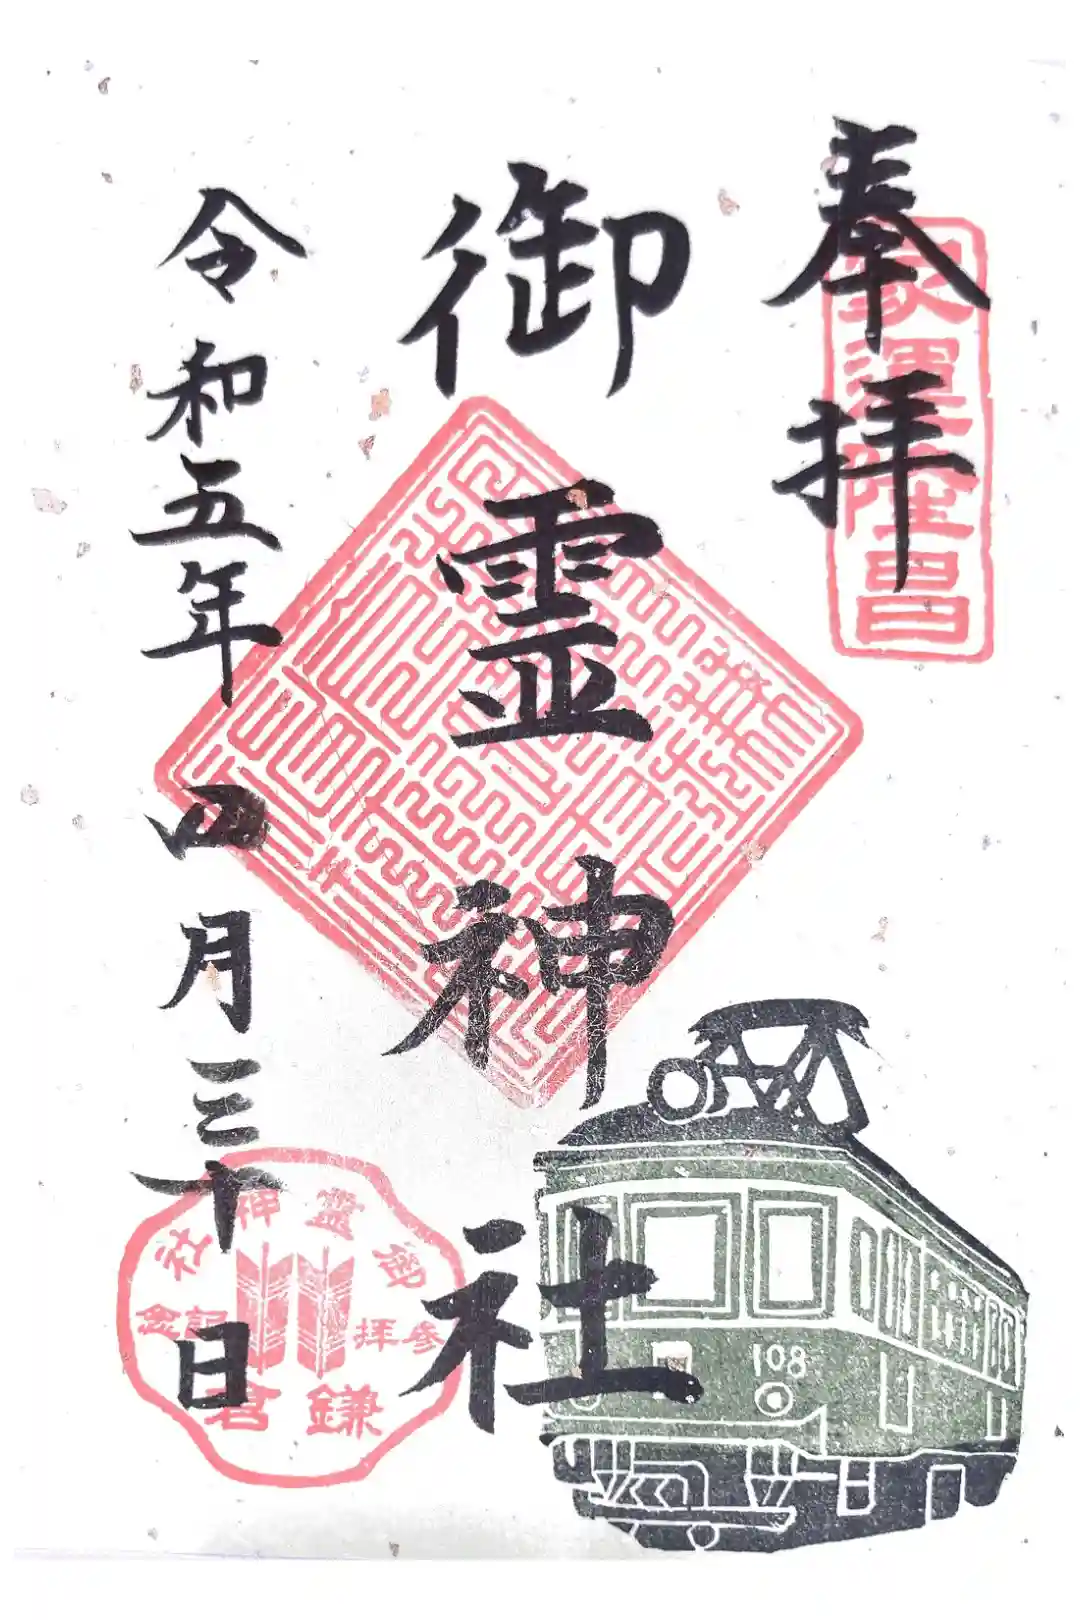 奉拝
御霊神社
令和五年四月三十日
御霊神社
参拝記念
鎌倉
108